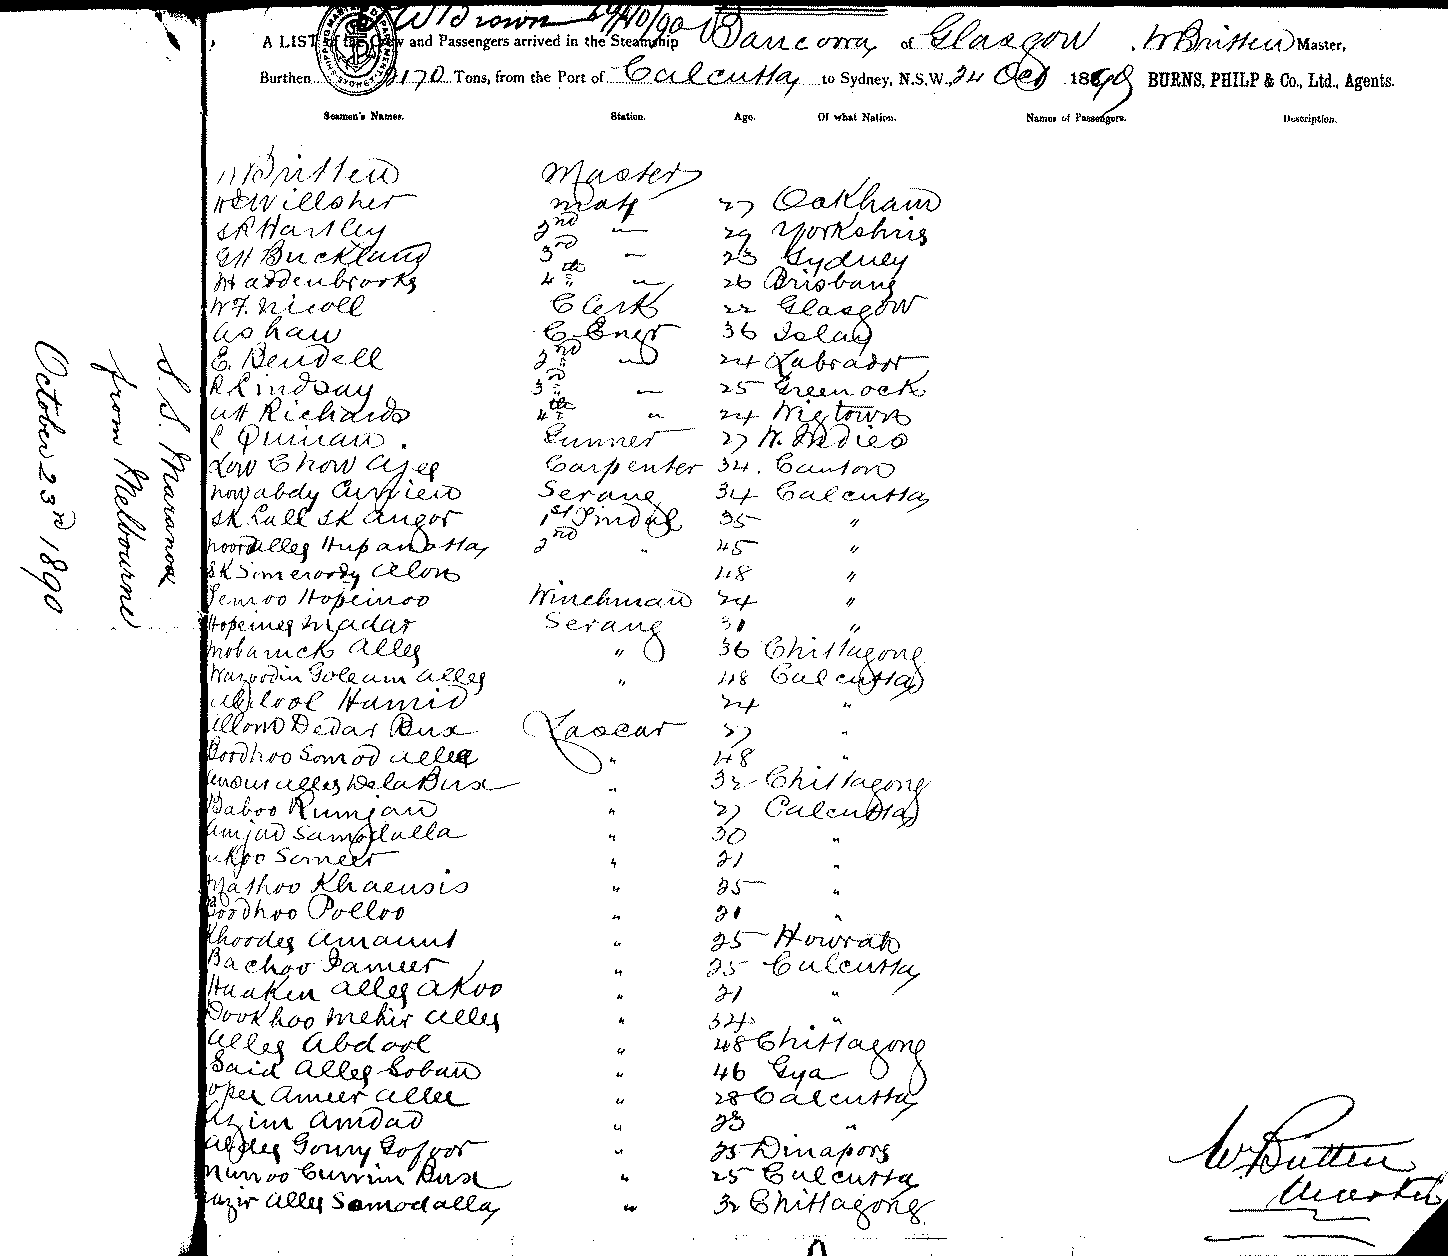 W Brown 24/10/90
A LIST of the Crew and Passengers arrived in the Steamship Bancoora of Glasgow W Britten Master,
Burthen 2170 Tons, from the Port of Calcutta to Sydney, N.S.W., 24 Oct 1890 BURNS, PHILP & Co., Ltd., Agents.
Seamen's Names. Station. Age. Of what Nation. Names of Passengers. Description.
W Britten Master
Willsher Mate 27 Oakham
Hartley 2nd " 29 Yorkshire
Buckland 3rd " 23 Sydney
Addenbrooke 4th " 26 Brisbane
W F. Nicoll Clerk 22 Glasgow
A Shaw C Engr 36 Islay
E. Bendell 2nd " 24 Labrador
R Lindsay 3rd " 25 Greenock
Richards 4th " 24 Wigtown
Quinan Gunner 27 W. Indies
Low Chow Carpenter 34 Canton
Serang 34 Calcutta
Sk Lall Sk Angor 1st Tindal 35 "
2nd " 45 "
Sk 48 "
Winchman 24 "
Madar Serang 31 "
Mobaruck Alley " 36 Chittagong
Goleam Alley " 48 Calcutta
Abdool Hamid 24 "
Dedar Bux Lascar 27 "
Boodhoo Somod Allee " 48 "
Alley Dela Bux " 32 Chittagong
Baboo Rumjan " 27 Calcutta
Amjad Samodalla " 30 "
Someer " 21 "
Mathoo " 25 "
Boodhoo Polloo " 21 "
Amaunt " 25 Howrah
Bachoo Jameer " 25 Calcutta
Alley Akoo " 21 "
Dookhoo Mehir Alley " 34 "
Alley Abdool " 48 Chittagong
Said Alley Soban " 46 Gya
Ameer Allee " 28 Calcutta
Azim Amdad " 23 "
Goffoor " 25 Dinapore
Currim Bux " 25 Calcutta
Alley Somodalla " 32 Chittagong
W Britten
Master
S. S. Mararoa
from Melbourne
October 23rd 1890